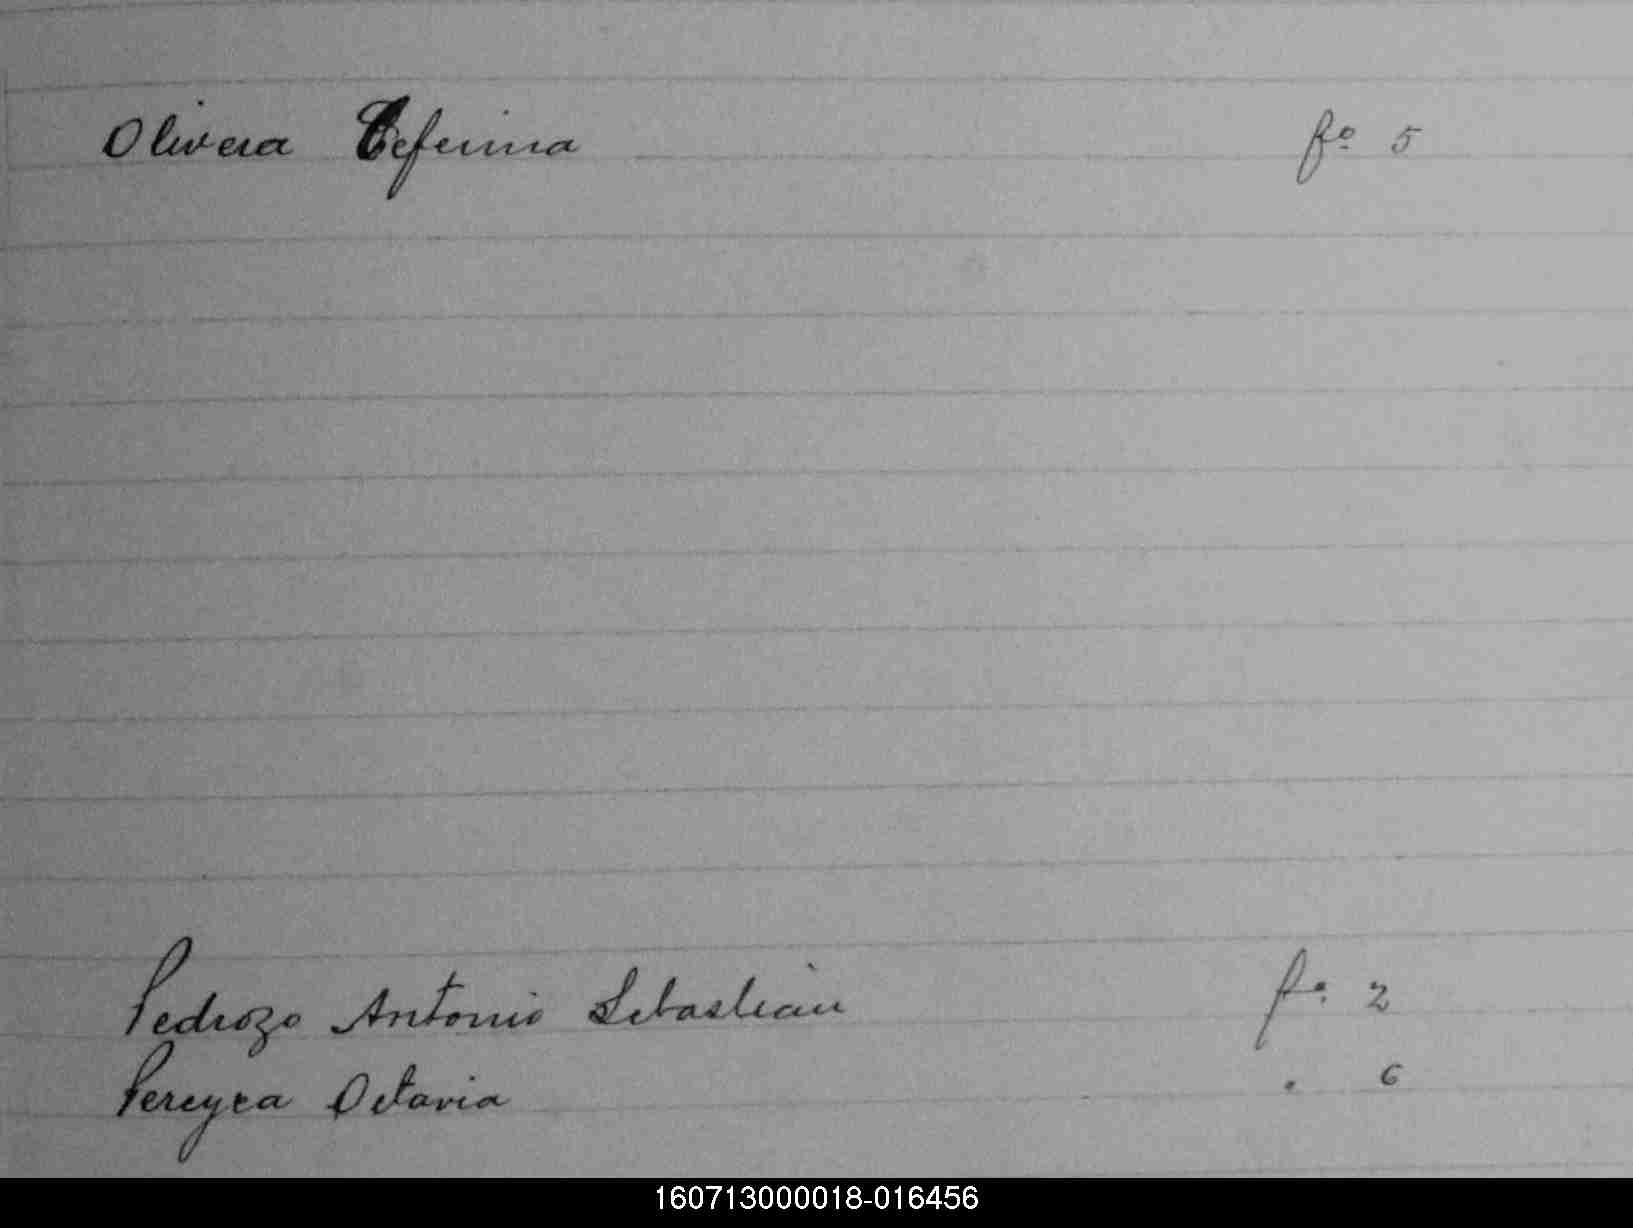 Olivera Ceferina fº 5
Pedrozo Antonio Sebastian fº 2
Pereyra Octavia " 6
160713000018-016456